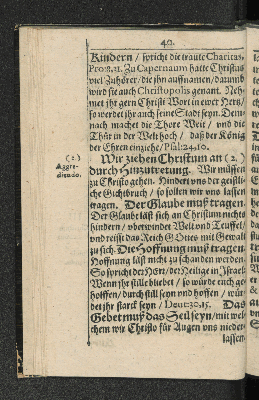 40.
Kindern / spricht die traute Charitas,
Pro: 8. 21. Zu Capernaum hatte Christus
viel Zuhörer / die jhn auffnamen / darumb
wird sie auch Christopolis genant. Neh-
met jhr gern Christi Wort in ewer Hertz /
so werdet jhr auch seine Stadt seyn. Dem-
nach machet die Thore Weit / und die
Thür in der Welt hoch / daß der König
der Ehren einziehe / Psal: 24. 10.
(2.)
Aggre-
diendo.
Wir ziehen Christum an (2.)
durch Hinzutretung. Wir müssen
zu Christo gehen. Hindert uns der geistli-
che Gichtbruch / so sollen wir uns lassen
tragen. Der Glaube muß tragen.
Der Glaube läst sich an Christum nichts
hindern / uberwindet Welt und Teuffel /
und reisst das Reich Gottes mit Gewalt
zu sich. Die Hoffnung muß tragen.
Hoffnung läst nicht zu schanden werden.
So spricht der Herr / der Heilige in Israel:
Wenn jhr stille bliebet / so würde euch ge-
holffen / durch still seyn und hoffen / wür-
det jhr starck seyn / 30. 15. Das
Gebet muß das Seil seyn / mit wel-
chem wir Christo für Augen uns nieder-
lassen